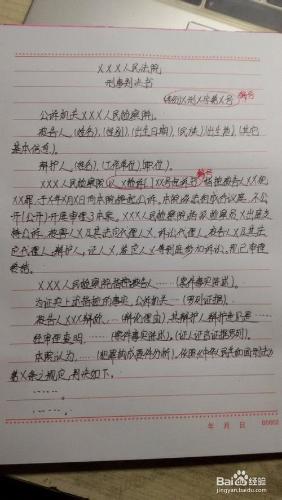 XXX人民法院
刑事判决书
(年份)X刑X字第X号 案号
公诉机关XXX人民检察院。
被告人(姓名)、(性别)、(出生日期)、(民族)、(出生地)、(其它
基本信息)。
辩护人(姓名)、(工作单位)、(职位)。
XXX人民检察院以X检诉[ ]XX号起诉书 指控被告人XX犯
XX罪,于X年X月X日向本院提起公诉。本院依法组成合议庭,不公
开(公开)开庭审理了本案。XXX人民检察院指派检察员X出庭支
持公诉,被害人X及其法定代理人X、诉讼代理人,被告人X及其法
定代理人,辩护人,证人X,鉴定人X等到庭参加诉讼。现已审理
终结。
XXX人民检察院指控被告人……(案件事实讲述)。
为证实上述指控的事实,公诉机关…(罗列证据)。
被告人XXX辩称…(辩论理由)其辩护人辩护意见是……
经审理查明……(案件事实讲述)。(证人证言证据罗列)。
本院认为……(犯罪构成要件分析)。依照《中华人民共和国刑法》
第X条之规定,判决如下。
……,
……。
年 月 日
Bai 经验
jingyan.baidu.com